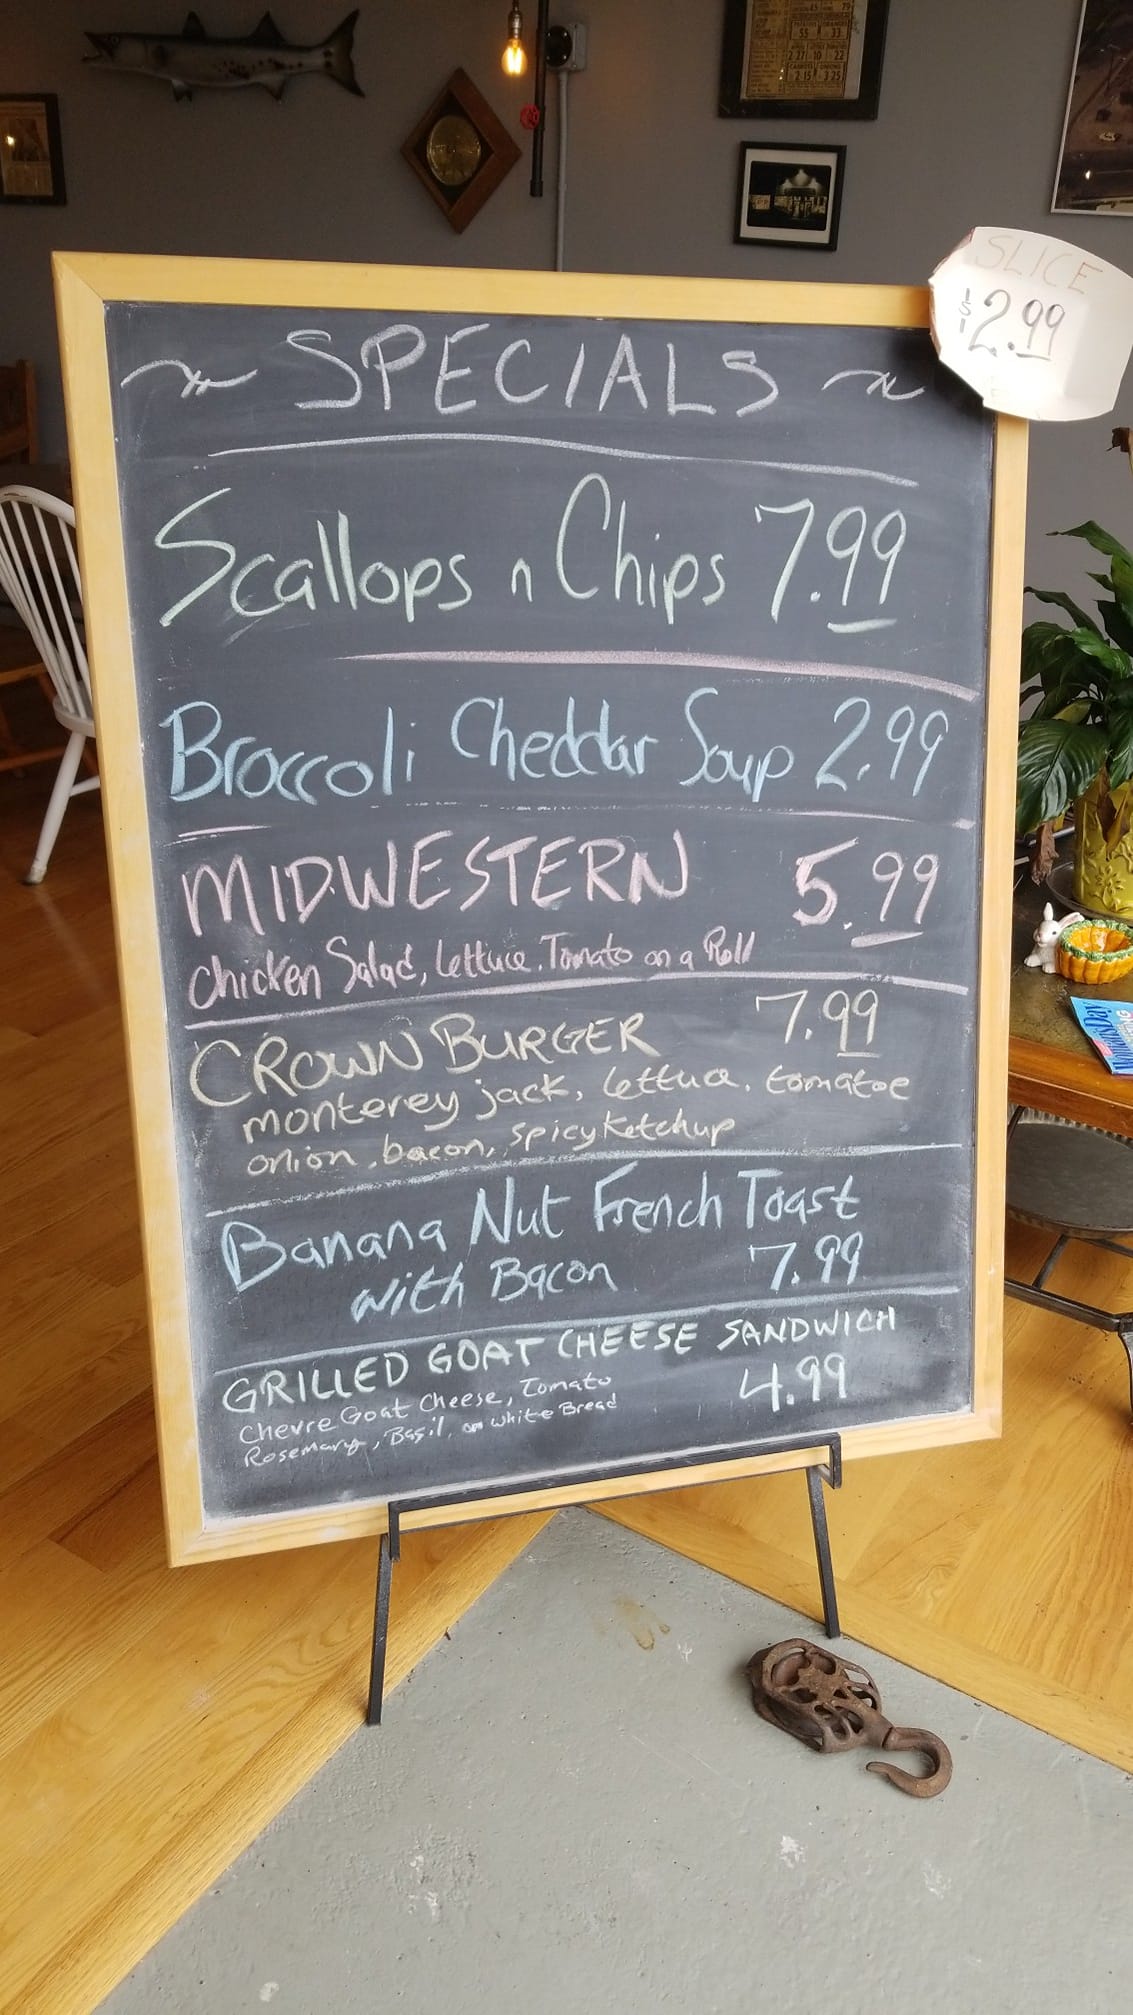 SLICE
$2.99
SPECIALS
Scallops n Chips 7.99
Broccoli Cheddar Soup 2.99
MIDWESTERN 5.99
Chicken Salad, Lettuce, Tomato on a Roll
CROWN BURGER 7.99
monterey jack, lettuce, tomatoe
onion, bacon, spicy ketchup
Banana Nut French Toast
with Bacon 7.99
GRILLED GOAT CHEESE SANDWICH
4.99
Chevre Goat Cheese, Tomato
Rosemary, Basil, on White Bread
Woman'sDay